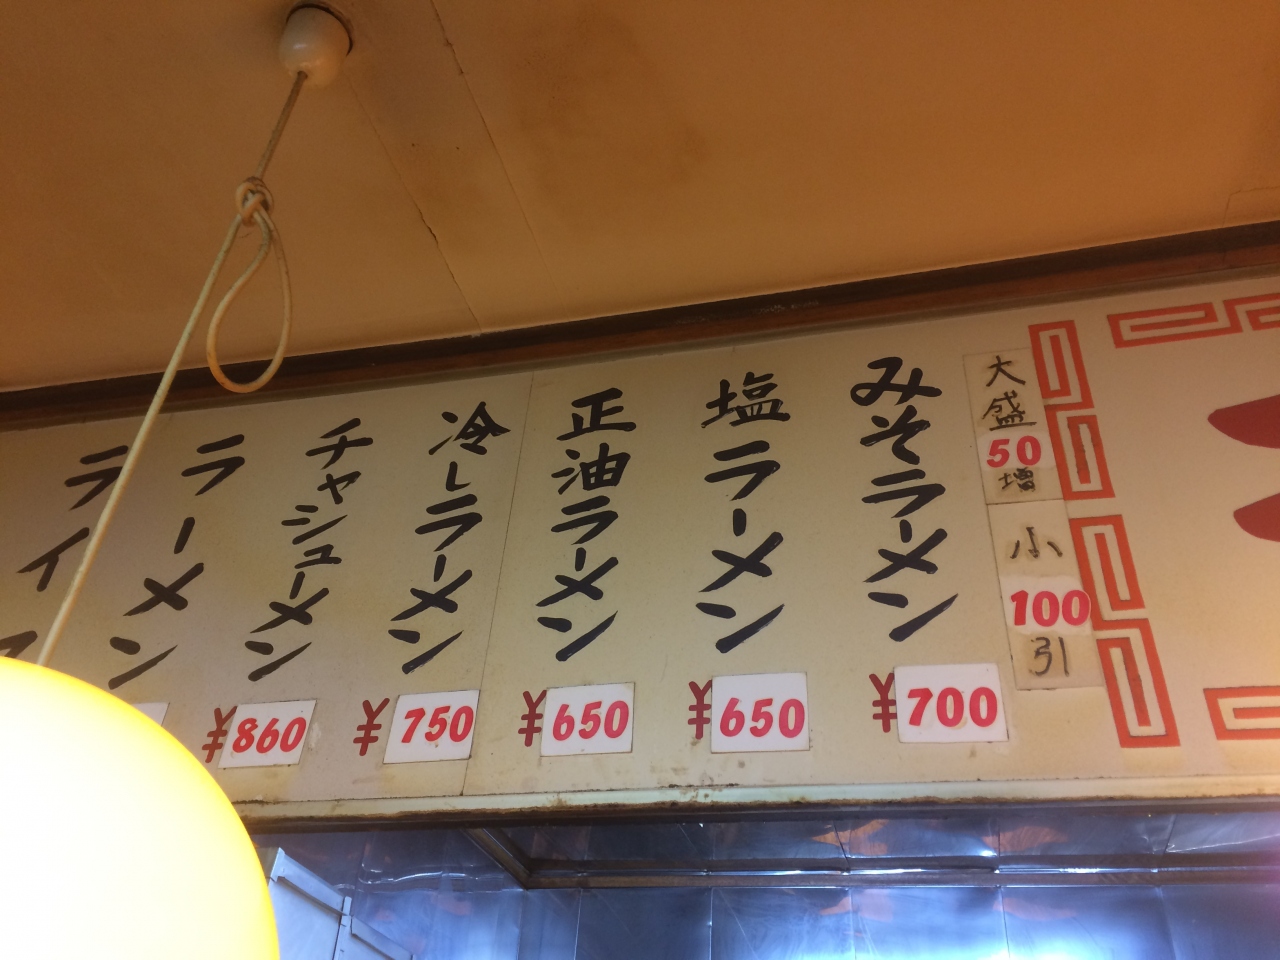 大盛
50
増
小
100
引
みそラーメン
¥700
塩ラーメン
¥650
正油ラーメン
¥650
冷しラーメン
¥750
チャシューメン
¥860
ラーメン